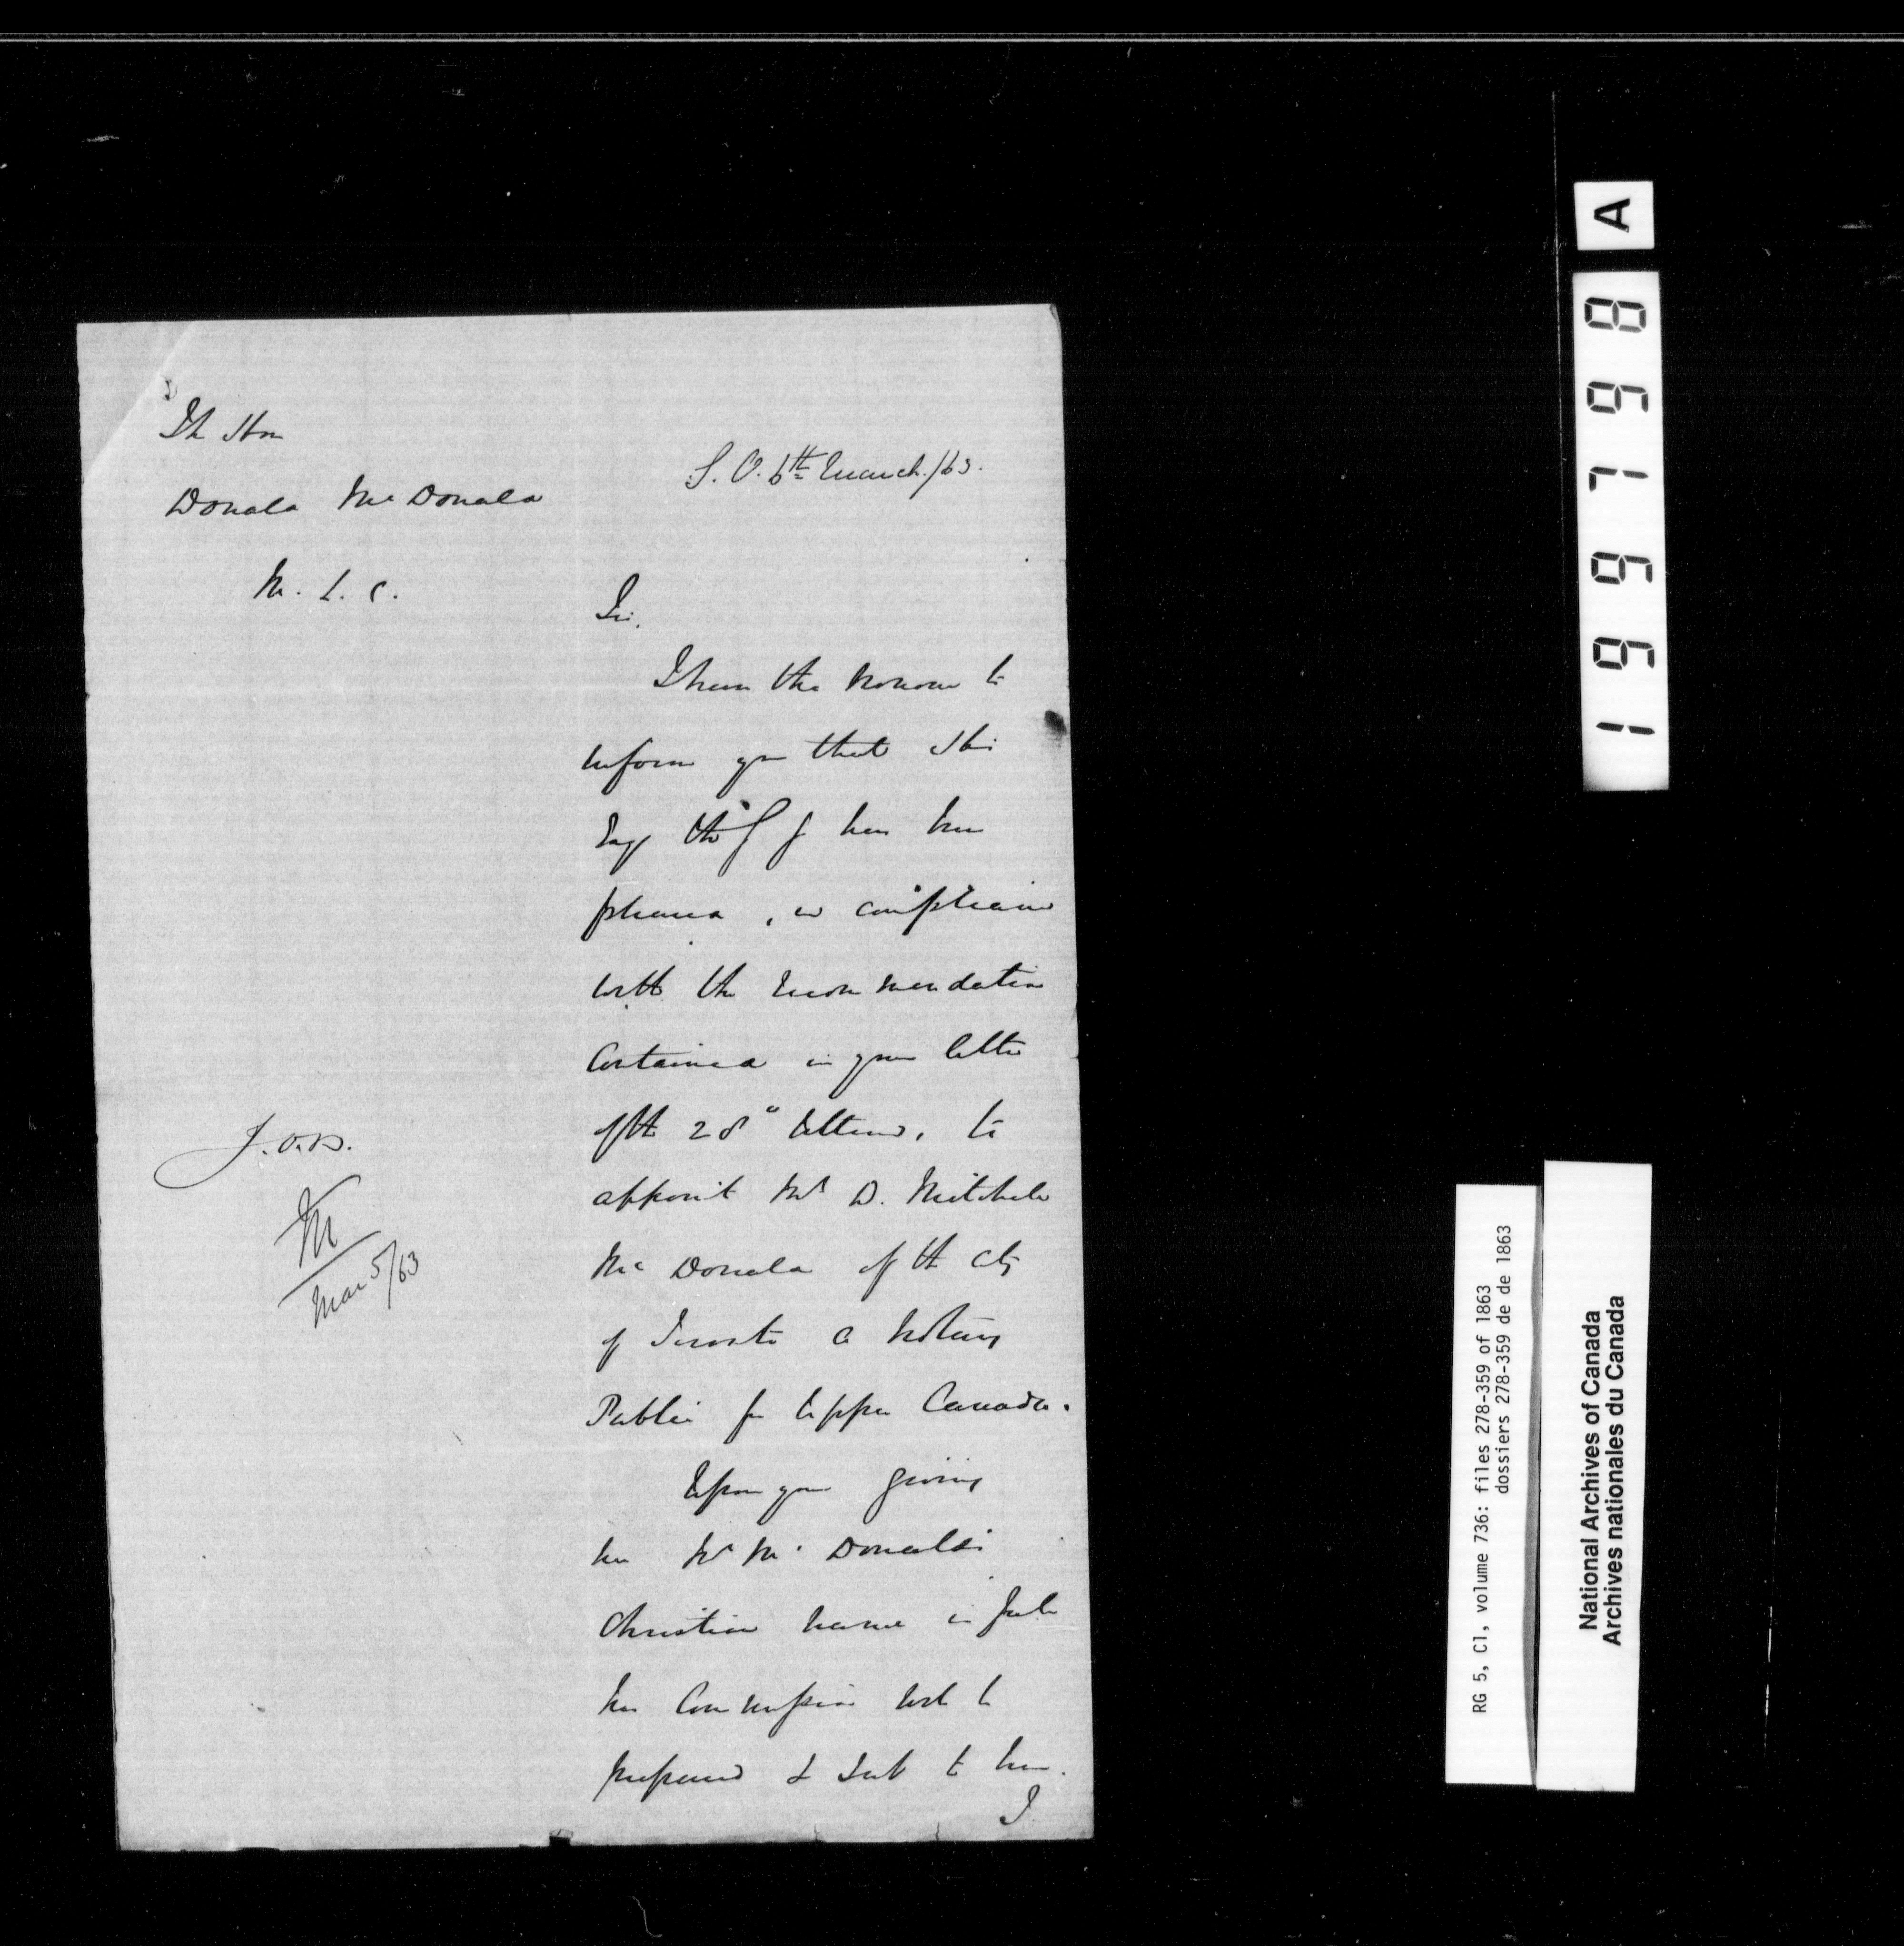 The Hon
Donald McDonald
M. L. C.
S. O. 6th March /63.
Sir,
I have the honour to
inform you that His
Exy the G G has been
pleased, in compliance
with the recommendation
contained in your letter
of the 28" Ultimo, to
appoint Mr D. Mitchell
McDonald of the City
of Toronto a Notary
Public for Upper Canada.
Upon your giving
me Mr McDonald's
Christian name in full
his Commission will be
prepared & sent to him.
I
J.O.B.
M
Mar 5/63
A
1661798
RG 5, C1, volume 736: files 278-359 of 1863
dossiers 278-359 de de 1863
National Archives of Canada
Archives nationales du Canada